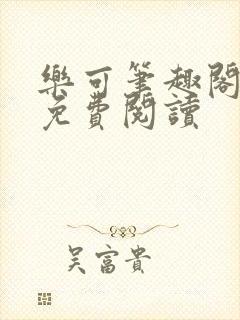 樂可筆趣閣
免費閱讀
吴富貴